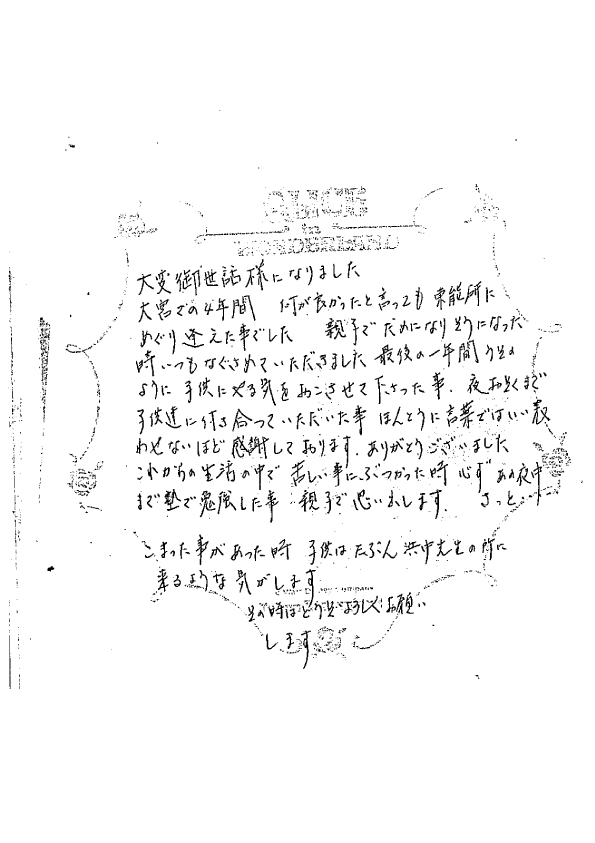 ALICE
in
WONDERLAND
大変御世話様になりました
大宮での4年間 何が良かったと言っても 東能所に
めぐり逢えた事でした 親子でだめになりそうになった
時いつもなぐさめていただきました 最後の一年間うその
ように 子供にやる気をおこさせて下さった事、夜おそくまで
子供達に付き合っていただいた事 ほんとうに言葉ではいい表
わせないほど感謝しております。ありがとうございました
これからの生活の中で 苦しい事にぶつかった時 必ず あの夜中
まで塾で勉強した事 親子で思い出します。 きっと……
こまった事があった時 子供はたぶん 浜中先生の所に
来るような気がします
その時はどうぞよろしくお願い
します